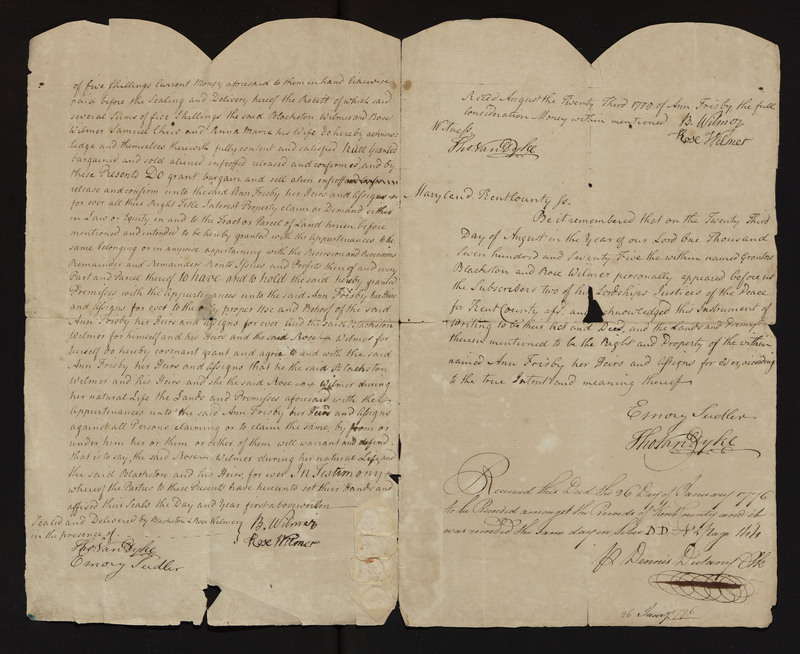 of five Shillings Current Money aforesaid to them in hand likewise
paid before the Sealing and Delivery hereof the Receit of which said
several Sums of five Shillings the said Blackston Wilmer and Rose
Wilmer Samuel and Anna Maria his Wife Do hereby acknow
ledge and themselves therewith fully content and satisfied have Granted
bargained and sold aliened infeoffed released and confirmed, and by
these Presents Do grant bargain and sell alien infeoff and confirm
release and confirm unto the said Ann Frisby her Heirs and Assigns
for ever all their Right Title Interest Property claim or Demand either
in Law or Equity in and to the Tract or Parcel of Land herein before
mentioned and intended to be hereby granted with the Appurtenances to the
same belonging or in anywise appertaining with the Reversion and Reversions
Remainder and Remainders Rents Issues and Profits thereof and every
Part and Parcel thereof to have and to hold the said hereby granted
Premises with the Appurtenances unto the said Ann Frisby her Heirs
and Assigns for ever to the only proper Use and Behoof of the said
Ann Frisby her Heirs and Assigns for ever And the said Blackston
Wilmer for himself and his Heirs and the said Rose Wilmer for
herself do hereby covenant grant and agree to and with the said
Ann Frisby her Heirs and Assigns that he the said Blackston
Wilmer and his Heirs and she the said Rose Wilmer during
her natural Life the Lands and Premisses aforesaid with the
Appurtenances unto the said Ann Frisby her Heirs and Assigns
against all Persons claiming or to claim the same, by from or
under him her or them or either of them will warrant and defend
that is to say, the said Rose Wilmer during her natural Life, and
the said Blackston and his Heirs, for ever In Testimony
whereof the Parties to these Presents have hereunto set their Hands and
affixed their Seals the Day and Year first above written
Sealed and Delivered by Blackston & Rose Wilmer
in the presence of
B. Wilmer
Rose Wilmer
Tho: Van Dyke
Emory Sudler
Recd. August the Twenty Third 1775 of Ann Frisby the full
Consideration Money within mentioned
B. Wilmer
Rose Wilmer
Witness
Tho Van Dyke
Maryland Kent County Ss.
Be it remembered that on the Twenty Third
Day of August in the Year of our Lord One Thousand
Seven hundred and Seventy Five the within named Grantors
Blackston and Rose Wilmer personally appeared before us
the Subscribers two of his Lordships Justices of the Peace
for Kent County afd. and acknowledged this Instrument of
Writing to be their Act and Deed, and the Lands and Premises
therein mentioned to be the Right and Property of the within
named Ann Frisby her Heirs and Assigns for Ever, according
to the true Intent and meaning thereof
Emory Sudler
Tho Van Dyke
Received this Deed the 26 Day of January 1776
to be Recorded amongst the Records of Kent County and it
was recorded the same day in Liber DD No. 2 Page 144
Dennis Dulany Clk
26 Jany 1776